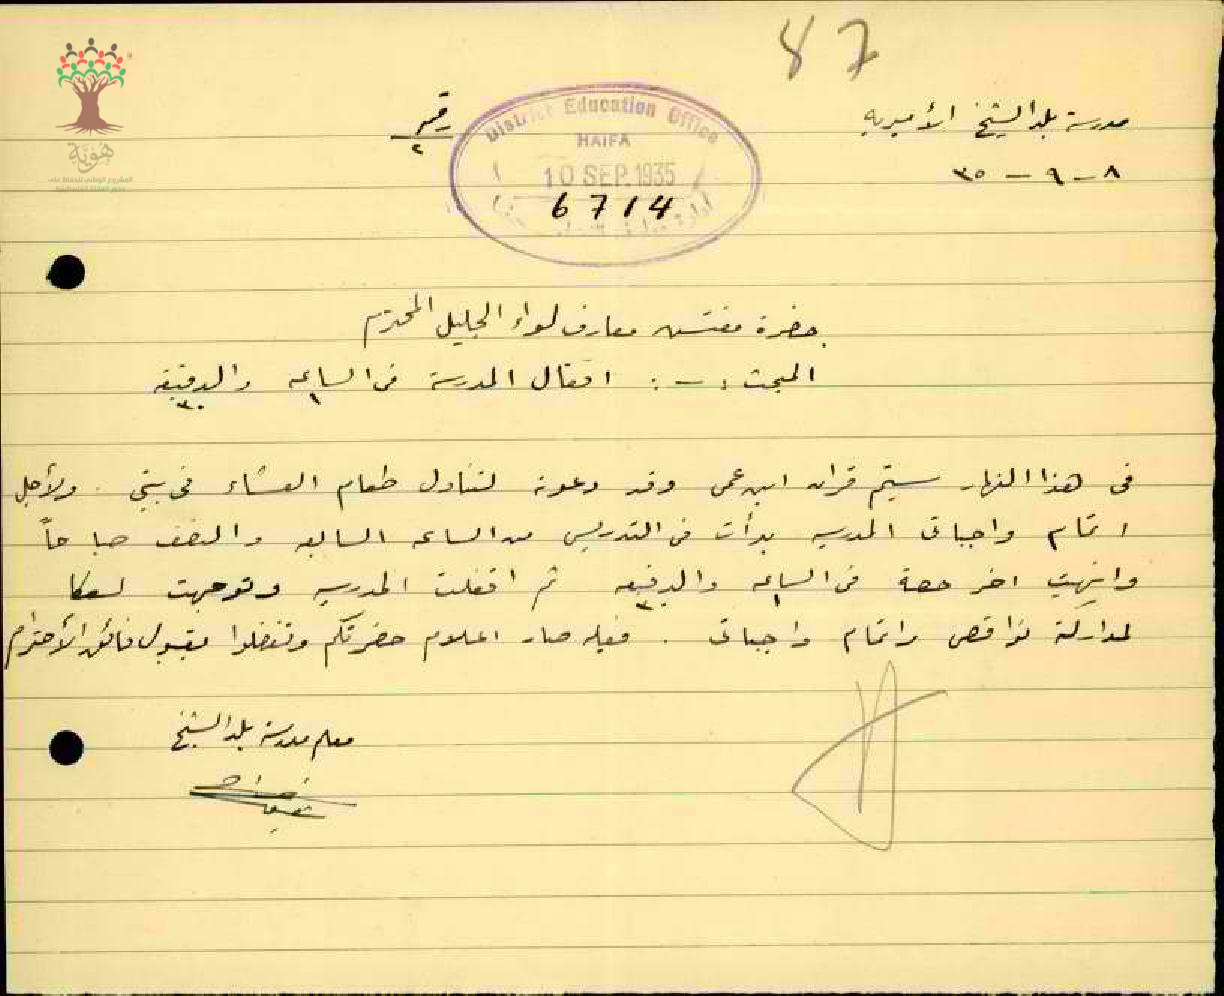 87
مدرسة بلد الشيخ الأميرية
٨ - ٩ - ٣٥
رقم
٢
District Education Office
HAIFA
10 SEP. 1935
6714
إدارة معارف
حضرة مفتش معارف لواء الجليل المحترم
المبحث :- : اقفال المدرسة في الساعه ١ والدقيقه ٣٠
في هذا النهار سيتم قران ابن عمي وقد دعوته لتناول طعام العشاء في بيتي . ولأجل
اتمام واجباتي المدرسيه بدأت في التدريس من الساعه السابعه والنصف صباحاً
وانهيت اخر حصة في الساعه ١ والدقيقه ٣٠ ثم اقفلت المدرسه وتوجهت لعكا
لمداركة نواقص واتمام واجباتي . فعليه صار اعلام حضرتكم وتفضلوا بقبول فائق الأحترام
معلم مدرسة بلد الشيخ
هُوِيَّة
المشروع الوطني للحفاظ على
جذور العائلة الفلسطينية